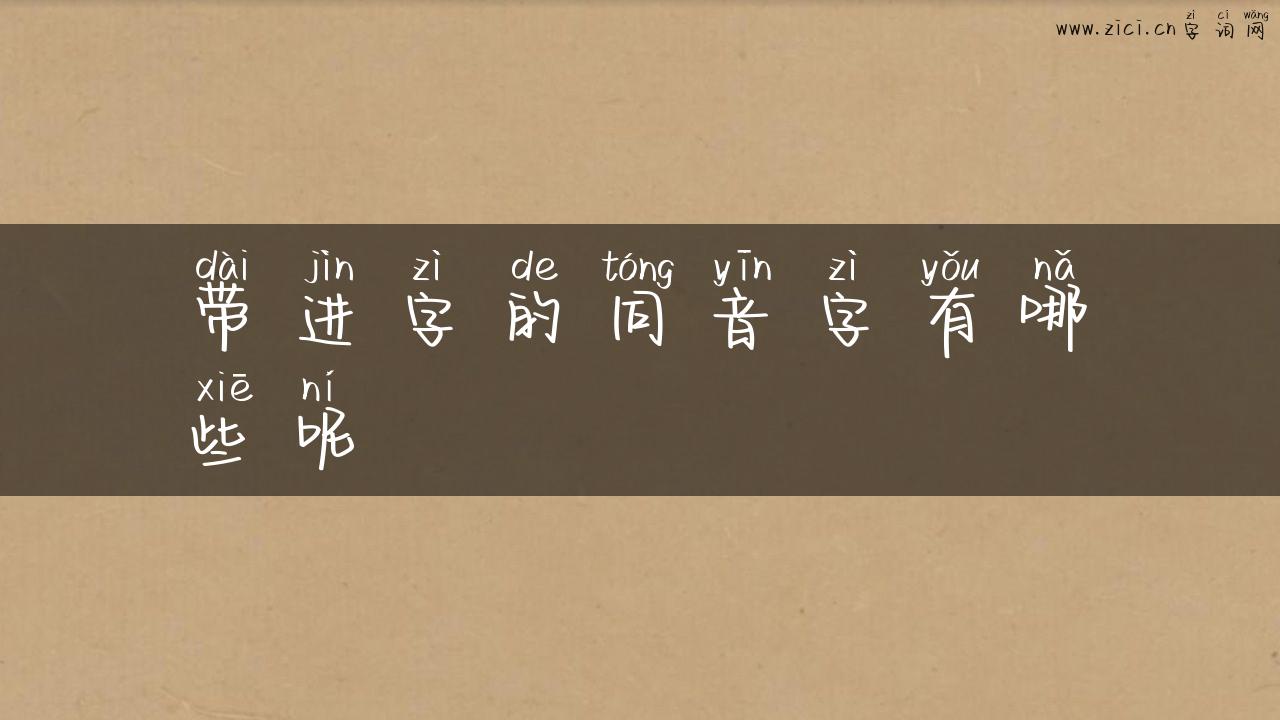 zì cí wǎng
www.zici.cn 字 词 网
dài jìn zì de tóng yīn zì yǒu nǎ
带 进 字 的 同 音 字 有 哪
xiē ní
些 呢